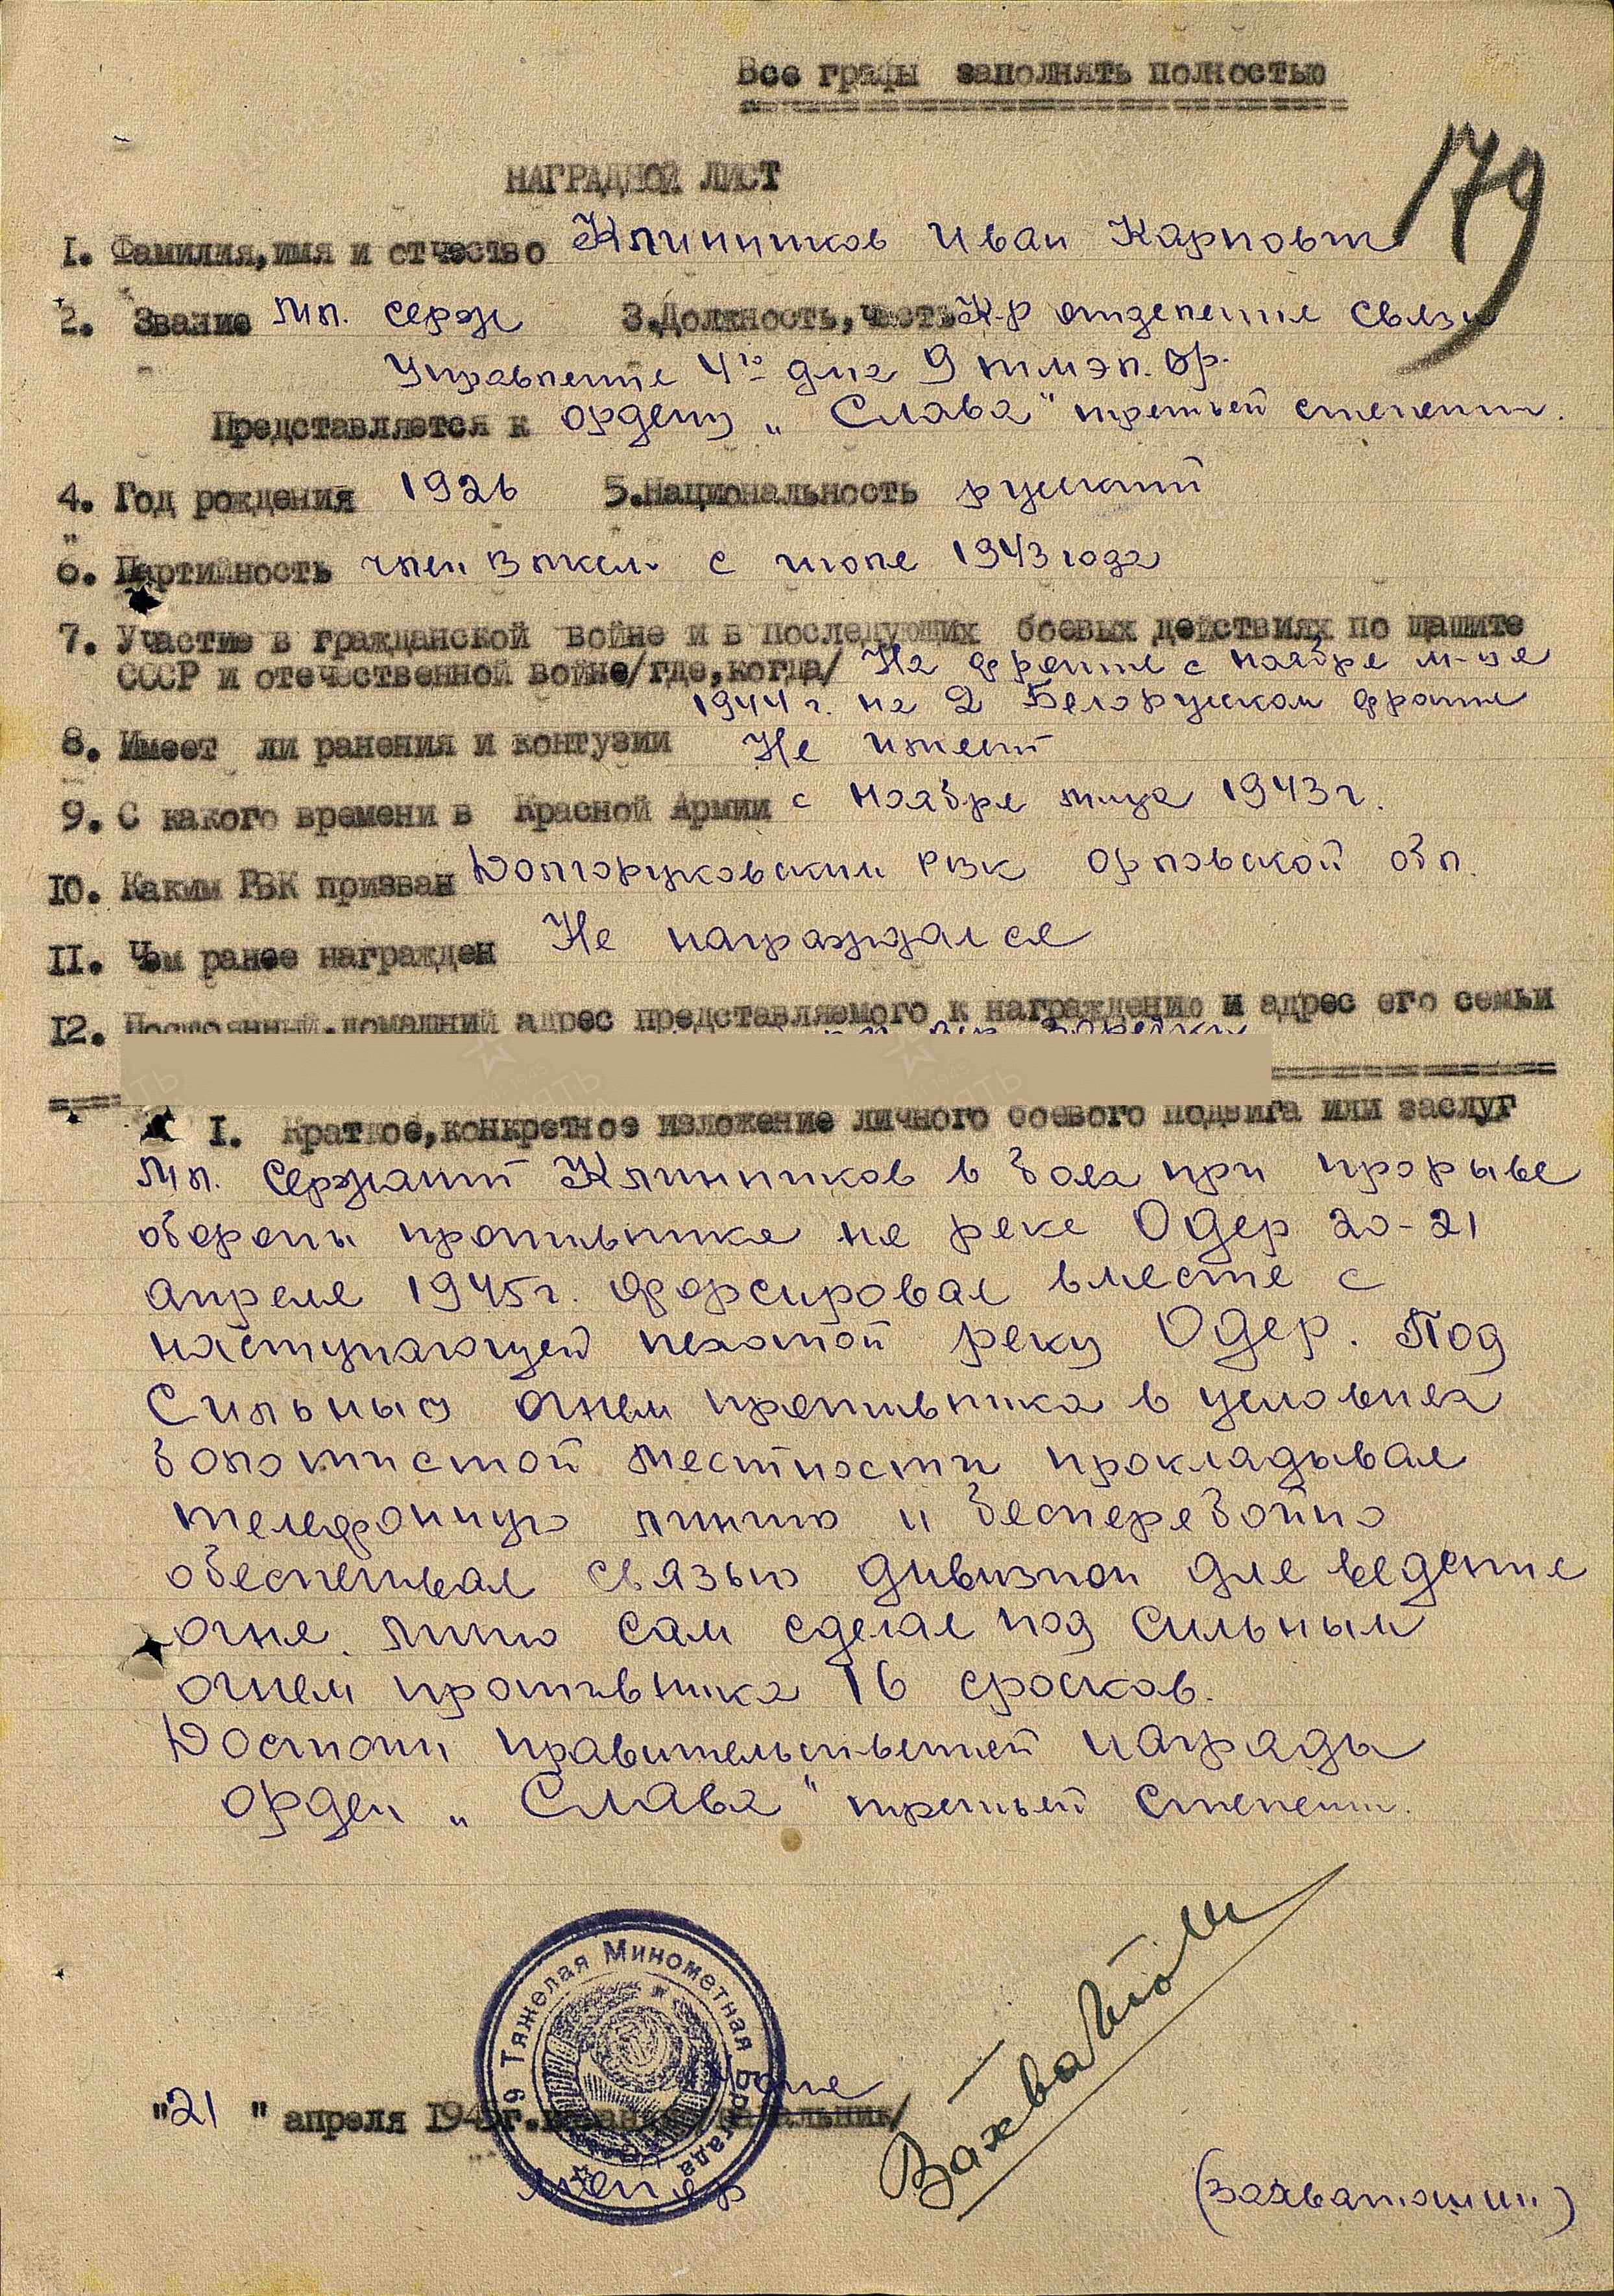 Все графы заполнять полностью
179
НАГРАДНОЙ ЛИСТ
1. Фамилия, имя и отчество Клинников Иван Карпович
2. Звание Мл. серж 3. Должность, часть К-р отделение связи
Управление 4го д-на 9 тмэп. бр.
Представляется к ордену „Слава" третьей степени.
4. Год рождения 1926 5. Национальность русский
6. Партийность член Влксм с июле 1943 года
7. Участие в гражданской войне и в последующих боевых действиях по защите
СССР и отечественной войне/где, когда/ На фронте с ноября м-ца
1944 г. на 2 Белоруском фронте
8. Имеет ли ранения и контузии Не имеет
9. С какого времени в Красной Армии с ноября м-ца 1943 г.
10. Каким РВК призван Долгоруковским РВК Орловской обл.
11. Чем ранее награжден Не награждался
12. Постоянный, домашний адрес представляемого к награждению и адрес его семьи
I. Краткое, конкретное изложение личного боевого подвига или заслуг
Мл. Сержант Клинников в боях при прорыве
обороны противника на реке Одер 20-21
апреля 1945 г. форсировал вместе с
наступающей пехотой реку Одер. Под
Сильным огнем противника в условиях
болотистой местности прокладывал
телефонную линию и бесперебойно
обеспечивал связью дивизион для ведение
огня. Лично сам сделал под сильным
огнем противника 16 сростков.
Достоин правительственной награды
орден „Слава" третьей степени.
9 Тяжелая Минометная Бригада
"21" апреля 1945 г. /начальник/
майор
Захватошин
(Захватошин)